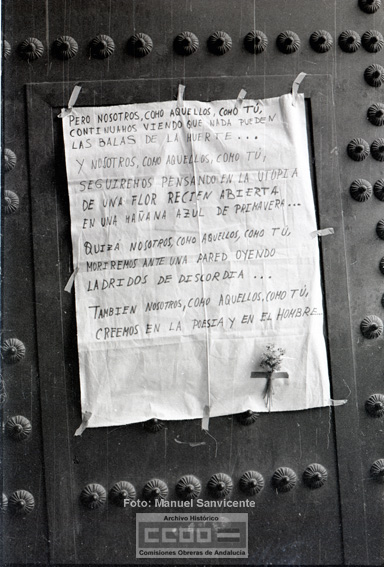 PERO NOSOTROS, COMO AQUELLOS, COMO TÚ,
CONTINUAMOS VIENDO QUE NADA PUEDEN
LAS BALAS DE LA MUERTE...
Y NOSOTROS, COMO AQUELLOS, COMO TÚ,
SEGUIREMOS PENSANDO EN LA UTOPIA
DE UNA FLOR RECIEN ABIERTA
EN UNA MAÑANA AZUL DE PRIMAVERA...
QUIZA NOSOTROS, COMO AQUELLOS, COMO TÚ,
MORIREMOS ANTE UNA PARED OYENDO
LADRIDOS DE DISCORDIA...
TAMBIEN NOSOTROS, COMO AQUELLOS, COMO TÚ,
CREEMOS EN LA POESIA Y EN EL HOMBRE...
Foto: Manuel Sanvicente
Archivo Histórico
CCOO
Comisiones Obreras de Andalucía